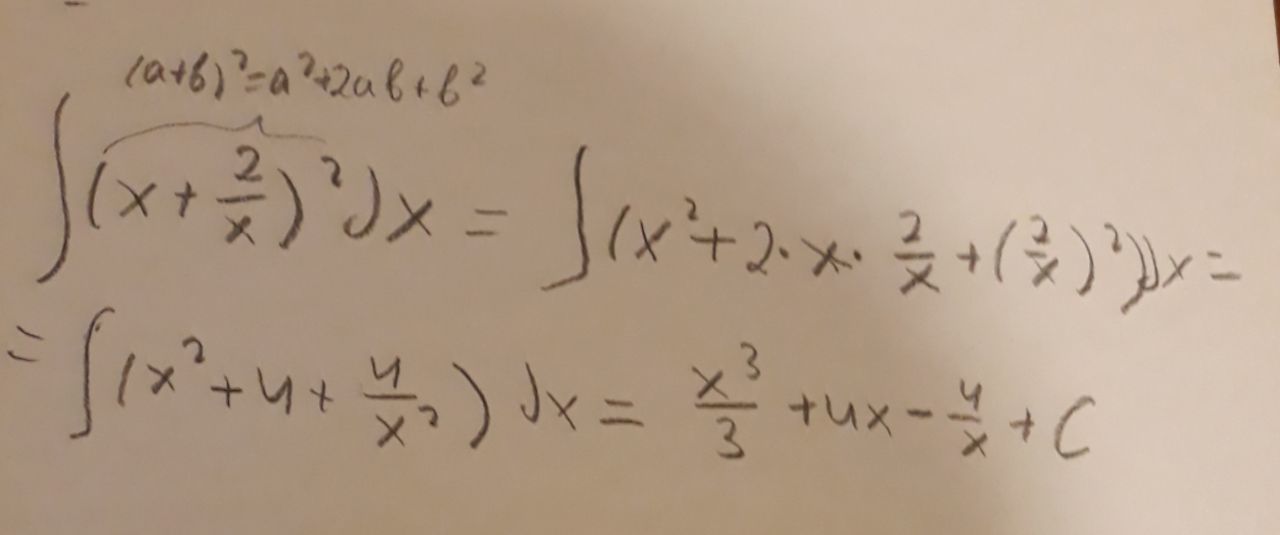 (a+b)²=a²+2ab+b²
∫(x+2/x)²dx = ∫(x²+2·x·2/x+(2/x)²)dx =
= ∫(x²+4+4/x²)dx = x³/3+4x-4/x+C